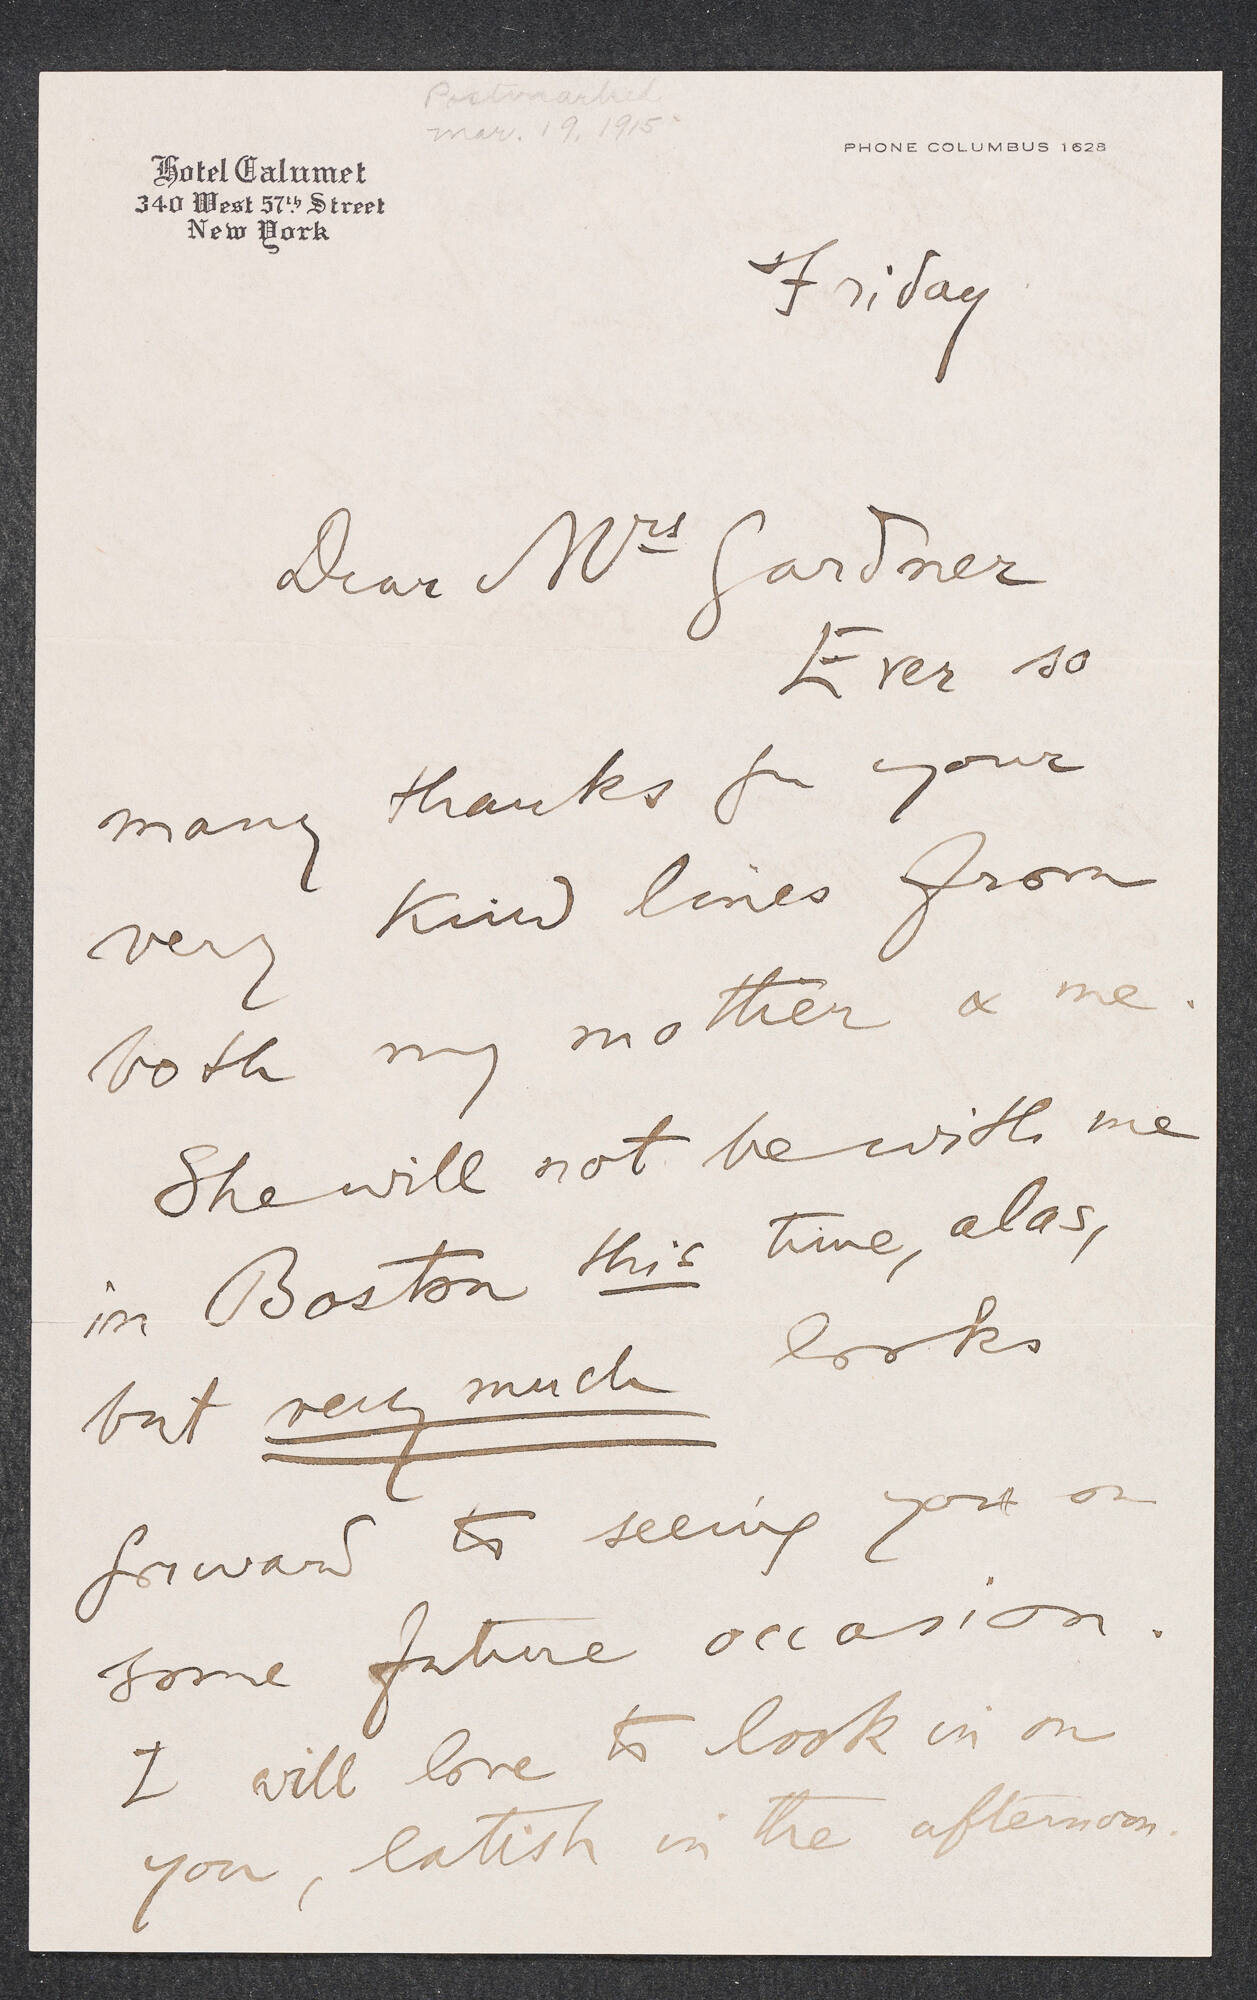 Postmarked
Mar. 19, 1915
PHONE COLUMBUS 1628
Hotel Calumet
340 West 57th Street
New York
Friday
Dear Mrs Gardner
Ever so
many thanks for your
very kind lines from
both my mother & me.
She will not be with me
in Boston this time, alas,
but very much looks
forward to seeing you on
some future occasion.
I will love to look in on
you, latish in the afternoon.